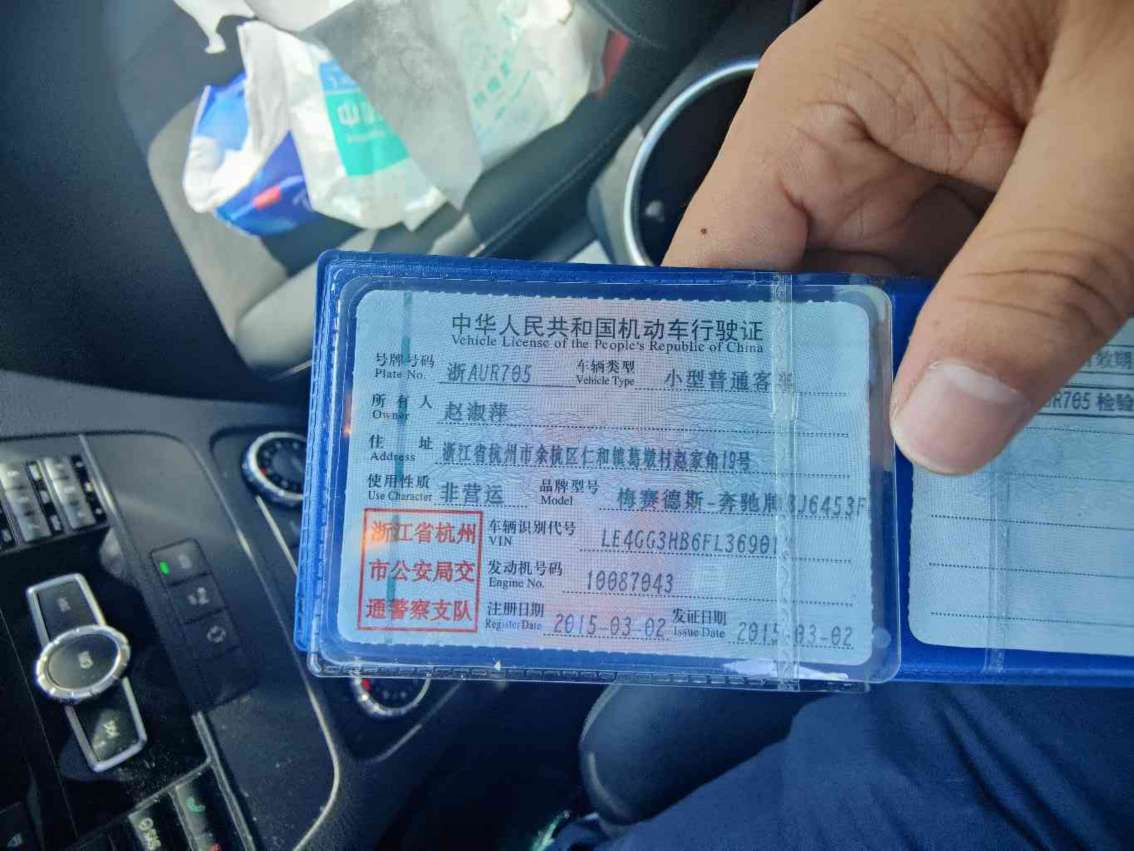 中华人民共和国机动车行驶证
Vehicle License of the People's Republic of China
号牌号码 浙AUR705 车辆类型 小型普通客
Plate No. Vehicle Type
所有人 赵淑萍
Owner
住址 浙江省杭州市余杭区仁和镇葛墩村赵家角19号
Address
使用性质 非营运 品牌型号 梅赛德斯-奔驰牌BJ6453F
Use Character Model
浙江省杭州
市公安局交
通警察支队
车辆识别代号 LE4GG3HB6FL36901
VIN
发动机号码 10087043
Engine No.
注册日期 2015-03-02 发证日期 2015-03-02
Register Date Issue Date
R705 检验